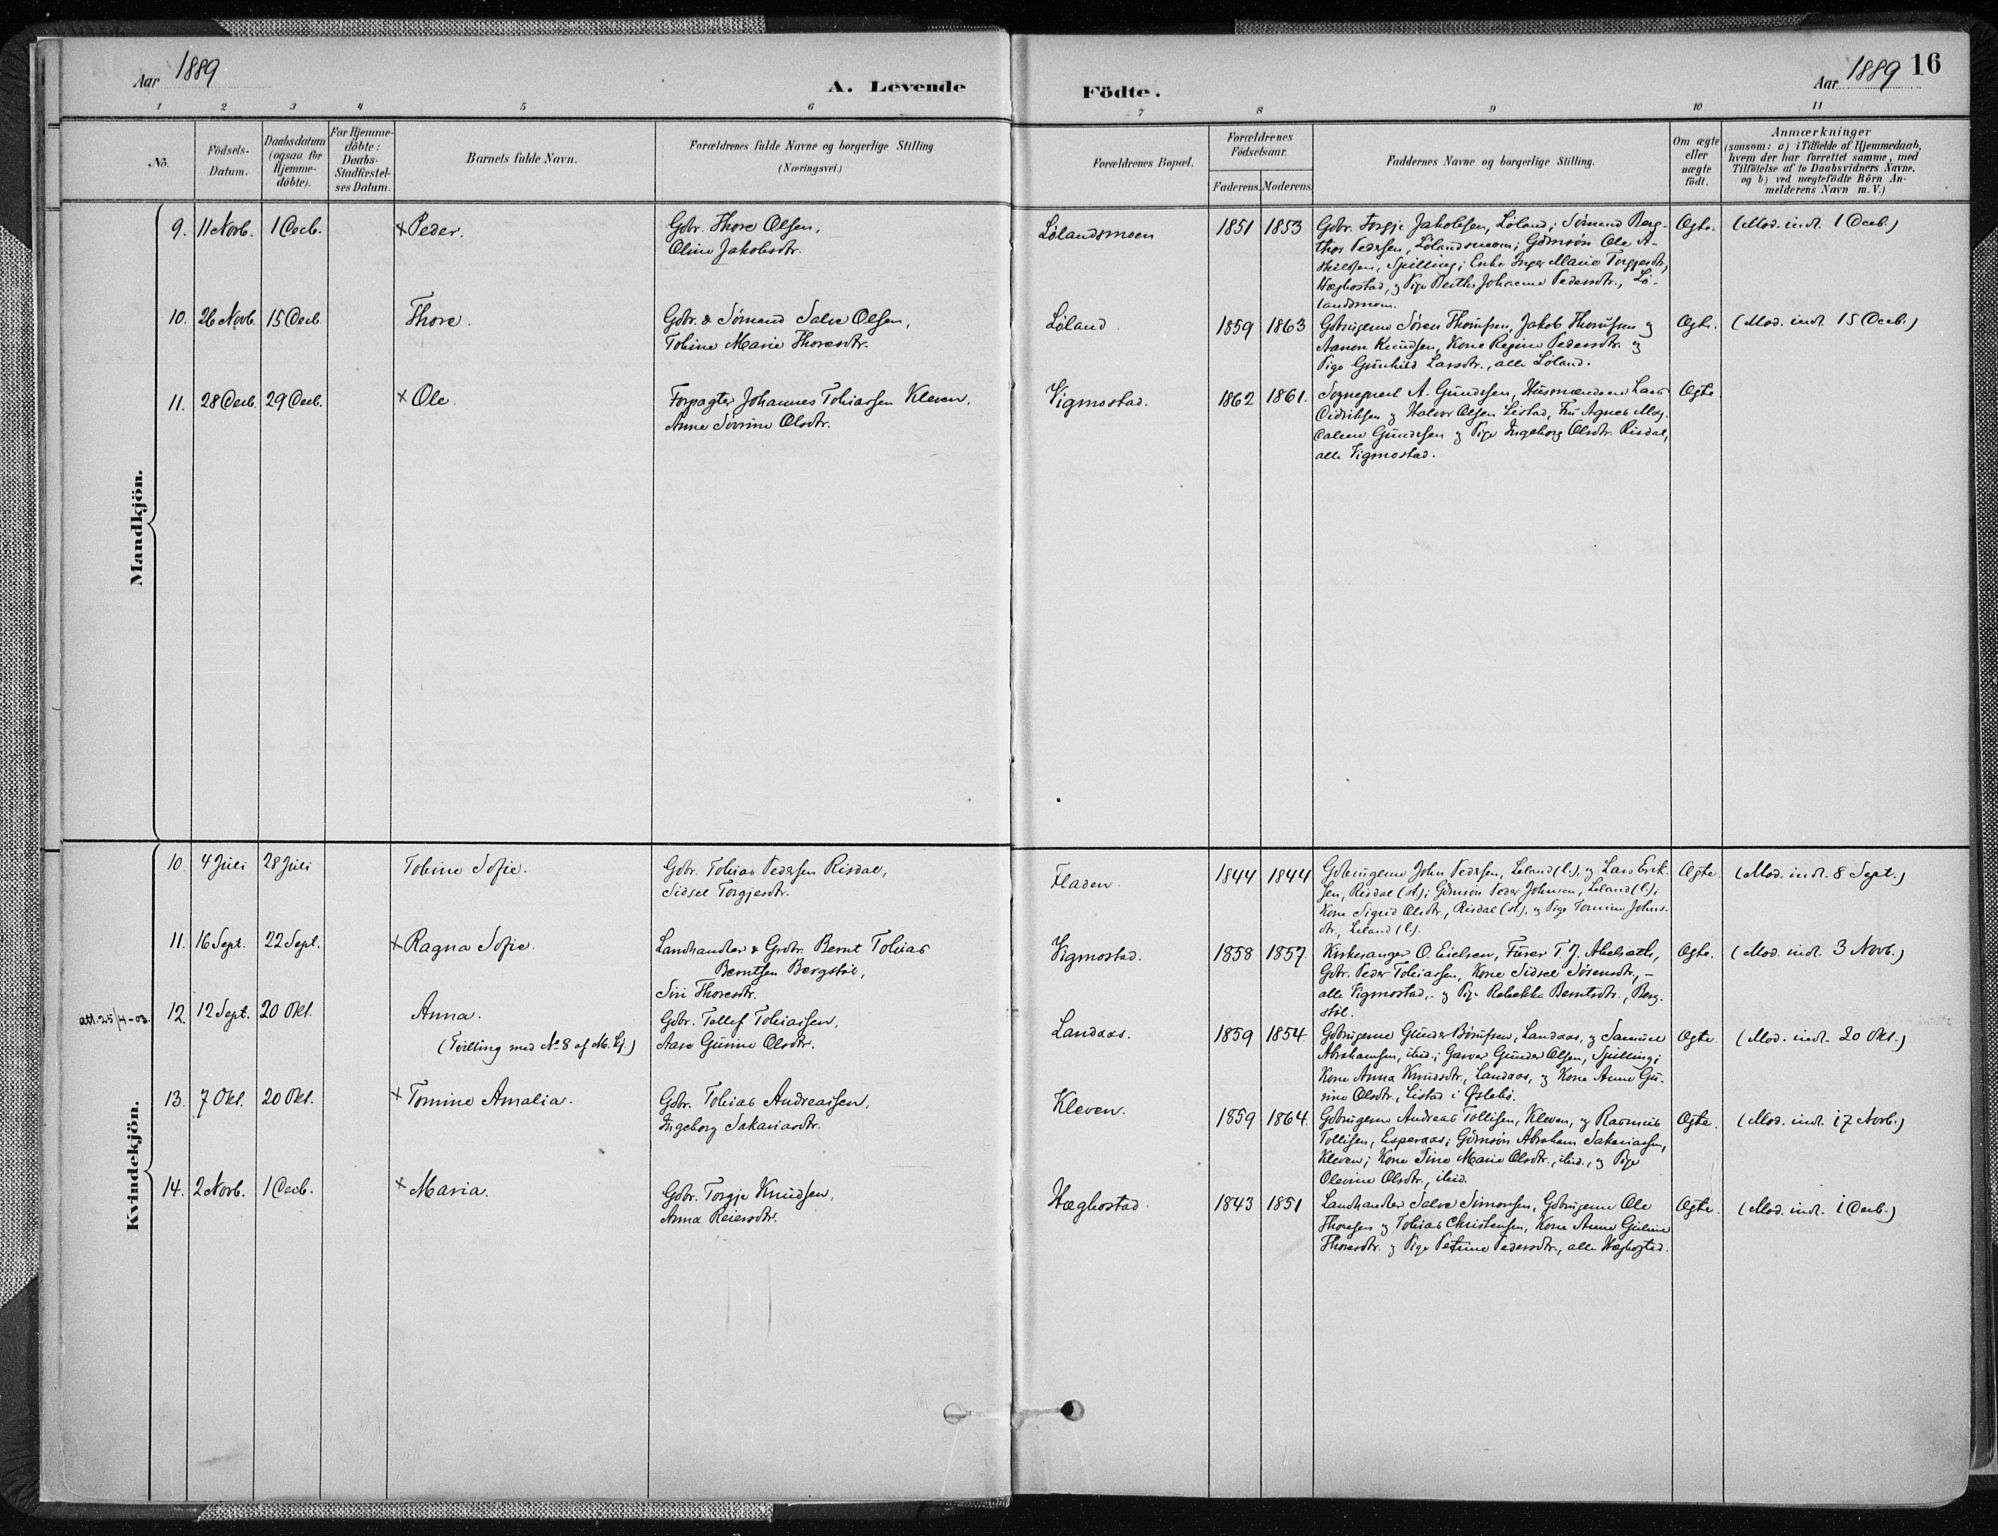 Aar 1889
A. Levende
Födte.
Aar 1889 16
1 2 3 4 5 6 7 8 9 10 11
No.
Födsels-
Datum.
Daabsdatum
(ogsaa for
Hjemme-
döbte).
For Hjemme-
döbte:
Daabs-
Stadfæstel-
ses Datum.
Barnets fulde Navn.
Forældrenes fulde Navne og borgerlige Stilling.
(Næringsvei.)
Forældrenes Bopæl.
Forældrenes
Födselsaar.
Faderens. Moderens.
Faddernes Navne og borgerlige Stilling.
Om ægte
eller
uægte
födt.
Anmærkninger
(saasom: a) i Tilfælde af Hjemmedaab,
hvem der har forrettet samme, med
Tilföielse af to Daabsvidners Navne,
og b) ved uægtefödte Börn An-
melderens Navn m. V.)
Mandkjön.
9. 11 Novb. 1 Decb. x Peder.
Gdbr. Thore Olsen,
Oline Jakobsdtr.
Lølandsmoen 1851 1853
Gdbr. Torgje Jakobsen, Løland; Sømand Berg-
thor Pedersen, Lølandsmoen; Gdmsøn Ole A-
Spilling; Enke Inger Marie Torgjesdtr,
Hæghostad, og Pige Berthe Johanne Pedersdtr., Lø-
landsmoen.
Ægte. (Mod. indl. 1 Decb.)
10. 26 Novb. 15 Decb. Thore.
Gdbr. & Sømand Salve Olsen,
Tobine Marie Thoresdtr.
Løland. 1859 1863
Gdbrugerne Søren Thomsen, Jakob Thomsen og
Aanon Knudsen, Kone Regine Pedersdtr. og
Pige Gunhild Larsdtr., alle Løland.
Ægte. (Mod. indl. 15 Decb.)
11. 28 Decb. 29 Decb. x Ole.
Forpagter Johannes Tobiassen Kleven,
Anne Severine Olsdtr.
Vigmostad. 1862 1861.
Sognepræst A. Gundersen, Husmændene Lars
Didriksen og Halvor Olsen Listad, Fru Agnes Mag-
dalene Gundersen og Pige Ingeborg Olsdtr. Risdal,
alle Vigmostad.
Ægte
Kvindekjön.
10. 4 Juli 28 Juli Tobine Sofie.
Gdbr. Tobias Pedersen Risdal,
Sidsel Torgjesdtr.
Fladen. 1844 1844
Gdbrugerne John Pedersen, Leland (l.), og Lars Erik-
sen, Risdal (st.); Gdmsøn Peder Johnsen, Leland (l);
Kone Sigrid Olsdtr., Risdal (st.), og Pige Tomine Johns-
dtr., Leland (l).
Ægte. (Mod. indl. 8 Sept.)
11. 16 Sept. 22 Sept. x Ragna Sofie.
Landhandler & Grdbr. Bernt Tobias
Berntsen Bergstøl,
Siri Thoresdtr.
Vigmostad. 1858 1857.
Kirkesanger O. Eielsen, Furer T. J. Abelseth,
Gdbr. Peder Tobiassen, Kone Sidsel Sørensdtr., –
alle Vigmostad, og Pige Rebekka Berntsdtr., Berg-
støl.
Ægte. (Mod. indl. 3 Novb.)
att. 25/4-03. 12. 12 Sept. 20 Okt. Anna.
(Tvilling med No 8 af M. Kj.)
Gdbr. Tellef Tobiassen,
Aase Gurine Olsdtr.
Landaas. 1859 1854.
Gdbrugerne Gunder Børufsen, Landaas, og Samuel
Abrahamsen, ibid.; Garver Gunder Olsen, Spilling;
Kone Anna Knudsdtr., Landaas, og Kone Anne Gu-
rine Olsdtr., Listad i Øslebø.
Ægte. (Mod. indl. 20 Okt.)
13. 7 Okt. 20 Okt. x Tomine Amalia.
Gdbr. Tobias Andreassen,
Ingeborg Sakariasdtr.
Kleven. 1859 1864.
Gdbrugerne Andreas Tollisen, Kleven, og Rasmus
Tollisen, Esperaas; Gdmsøn Abraham Sakariassen,
Kleven; Kone Sine Marie Olsdtr., ibid., og Pige
Olevine Olsdtr., ibid.
Ægte. (Mod. indl. 17 Novb.)
14. 2 Novb. 1 Decb. x Maria.
Gdbr. Torgje Knudsen,
Anna Reiersdtr.
Hæghostad. 1843 1851
Landhandler Salve Simonsen, Gdbrugerne Ole
Thoresen og Tobias Christensen, Kone Anne Guline
Thoresdtr. og Pige Petrine Pedersdtr., alle Hæghostad.
Ægte. (Mod. indl. 1 Decb.)